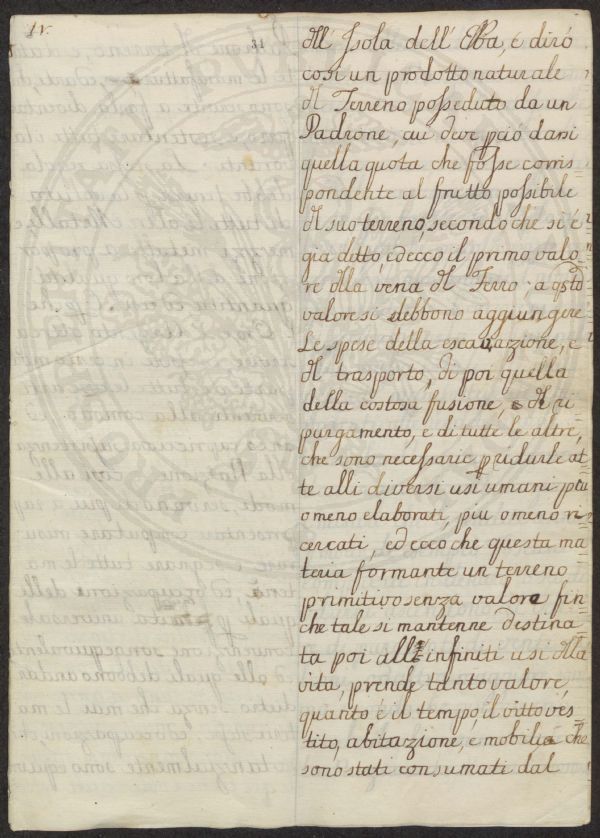 1v.
31
dll' Isola dell' Elba, é diró
cosi un prodotto naturale
dl Terreno posseduto da un
Padrone, cui deve pció darsi
quella quota che fosse corris
pondente al frutto possibile
dl suo terreno, secondo che si é
gia detto, ed ecco il primo valo
re dlla vena dl Ferro; a qsto
valore si debbono aggiungere
Le spese della escavazione, e
dl trasporto, di poi quella
della costosa fusione, e dl ri
purgamento, e di tutte le altre,
che sono necessarie p ridurle at
te alli diversi usi umani piu
o meno elaborati, piu o meno ri
cercati, ed ecco che questa ma
teria formante un terreno
primitivo senza valore fin
che tale si mantenne destina
ta poi all infiniti usi dlla
vita, prende tanto valore,
quanto é il tempo, il vitto ves
tito, abitazione, e mobilia che
sono stati consumati dal